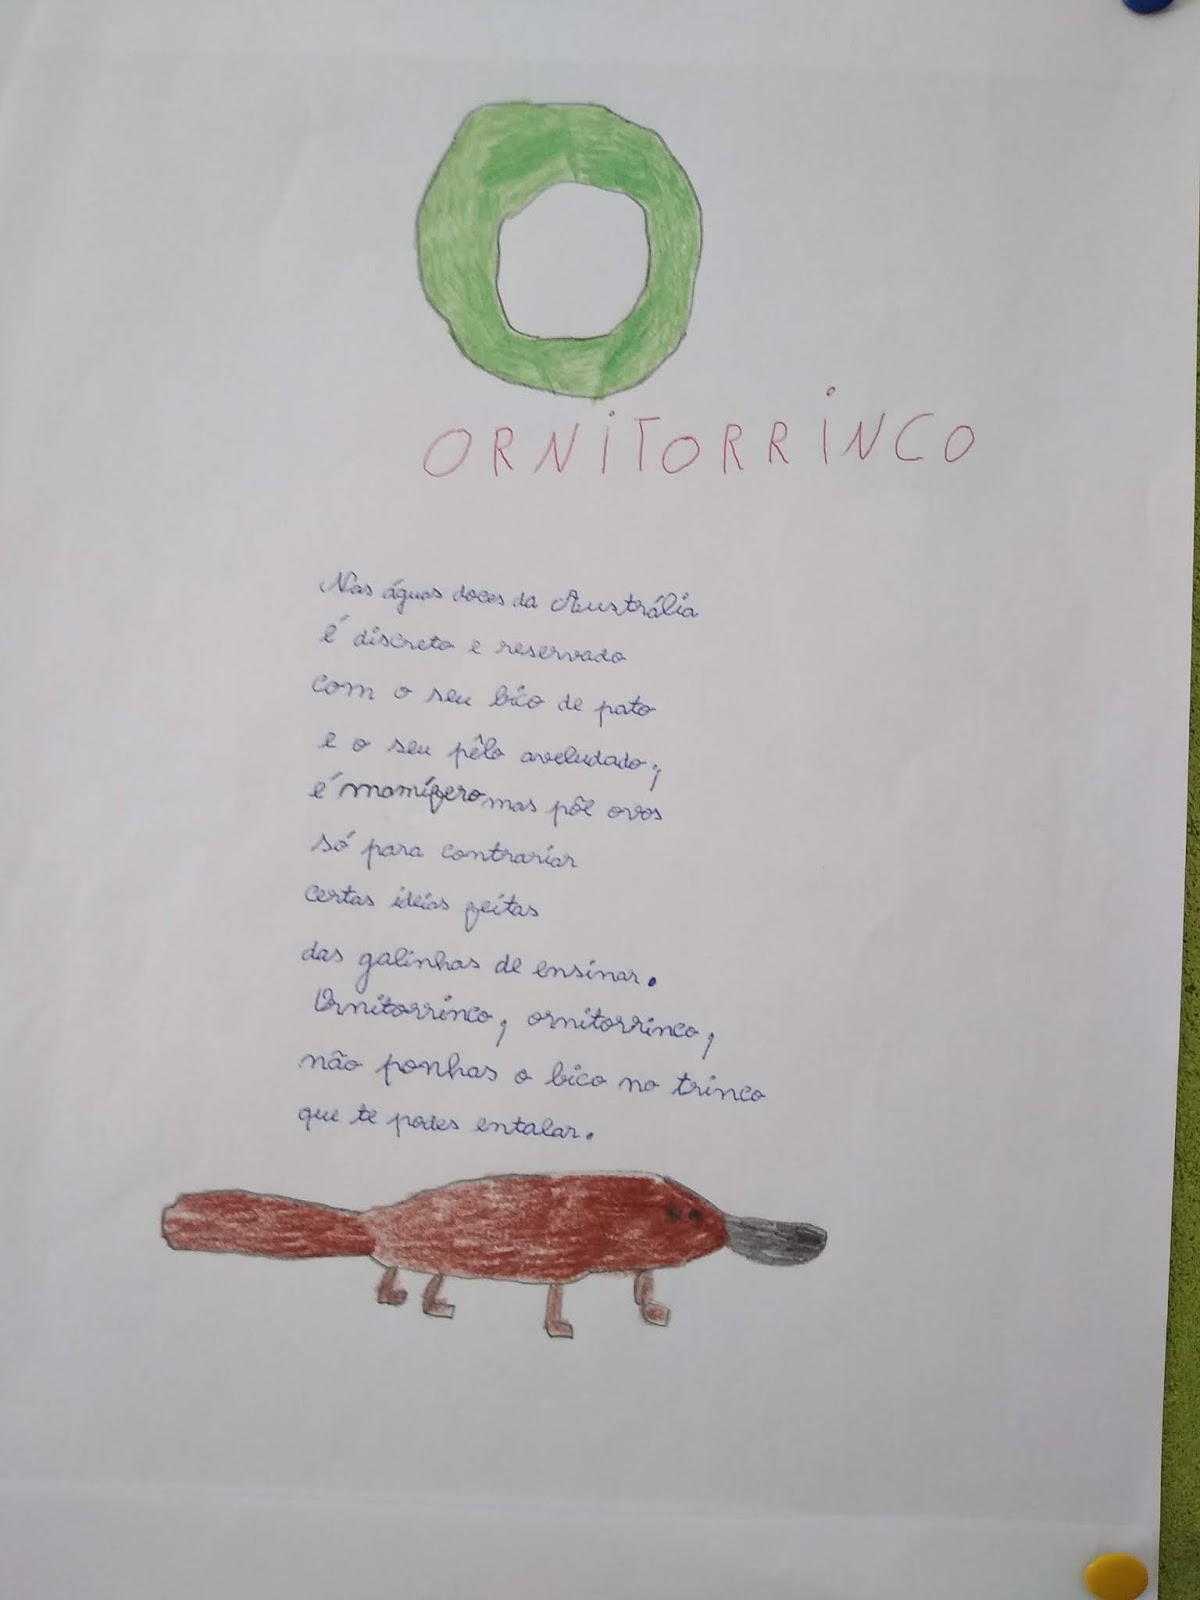 O
ORNiTORRiNCO
Nas águas doces da Austrália
é discreto e reservado
com o seu bico de pato
e o seu pêlo aveludado;
é mamífero mas põe ovos
só para contrariar
certas ideias feitas
das galinhas de ensinar.
Ornitorrinco, ornitorrinco,
não ponhas o bico no trinco
que te podes entalar.